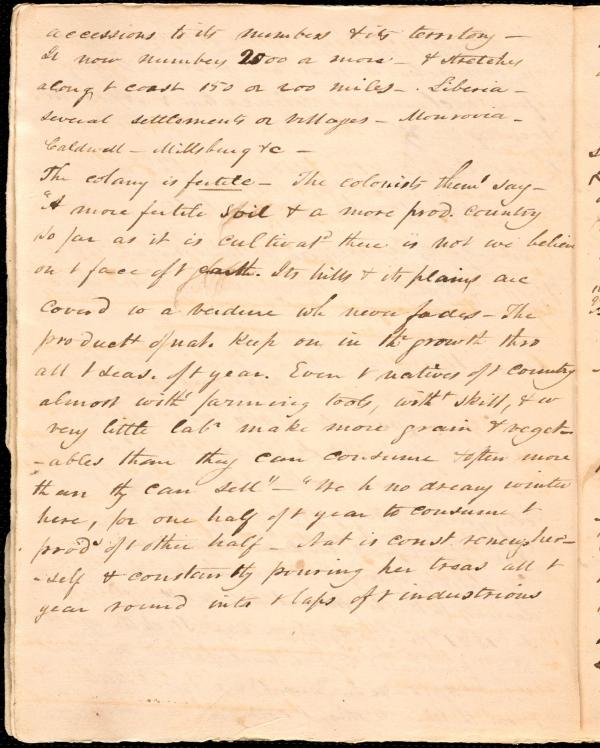 accessions to its numbers & its territory –
It now numbers 2000 or more – & stretches
along t coast 150 or 200 miles – . Liberia –
several settlements or villages – Monrovia –
Caldwell – Millsburg &c –
The colony is fertile – The colonists them' say –
"A more fertile soil & a more prod. country
so far as it is cultivatd there is not we believe
on t face of t earth. Its hills & its plains are
coverd w a verdure wh never fades – The
productt of nat. keep on in thr growth thro
all t seas. of t year. Even t natives of t country
almost witht farming tools, witht skill, & w
very little labr make more grain & veget-
-ables than they can consume & often more
than thy can sell" – "We h no dreary winter
here, for one half of t year to consume t
prods of t other half – Nat is const renewg her-
-self & constantly pouring her treas all t
year round into t laps of t industrious